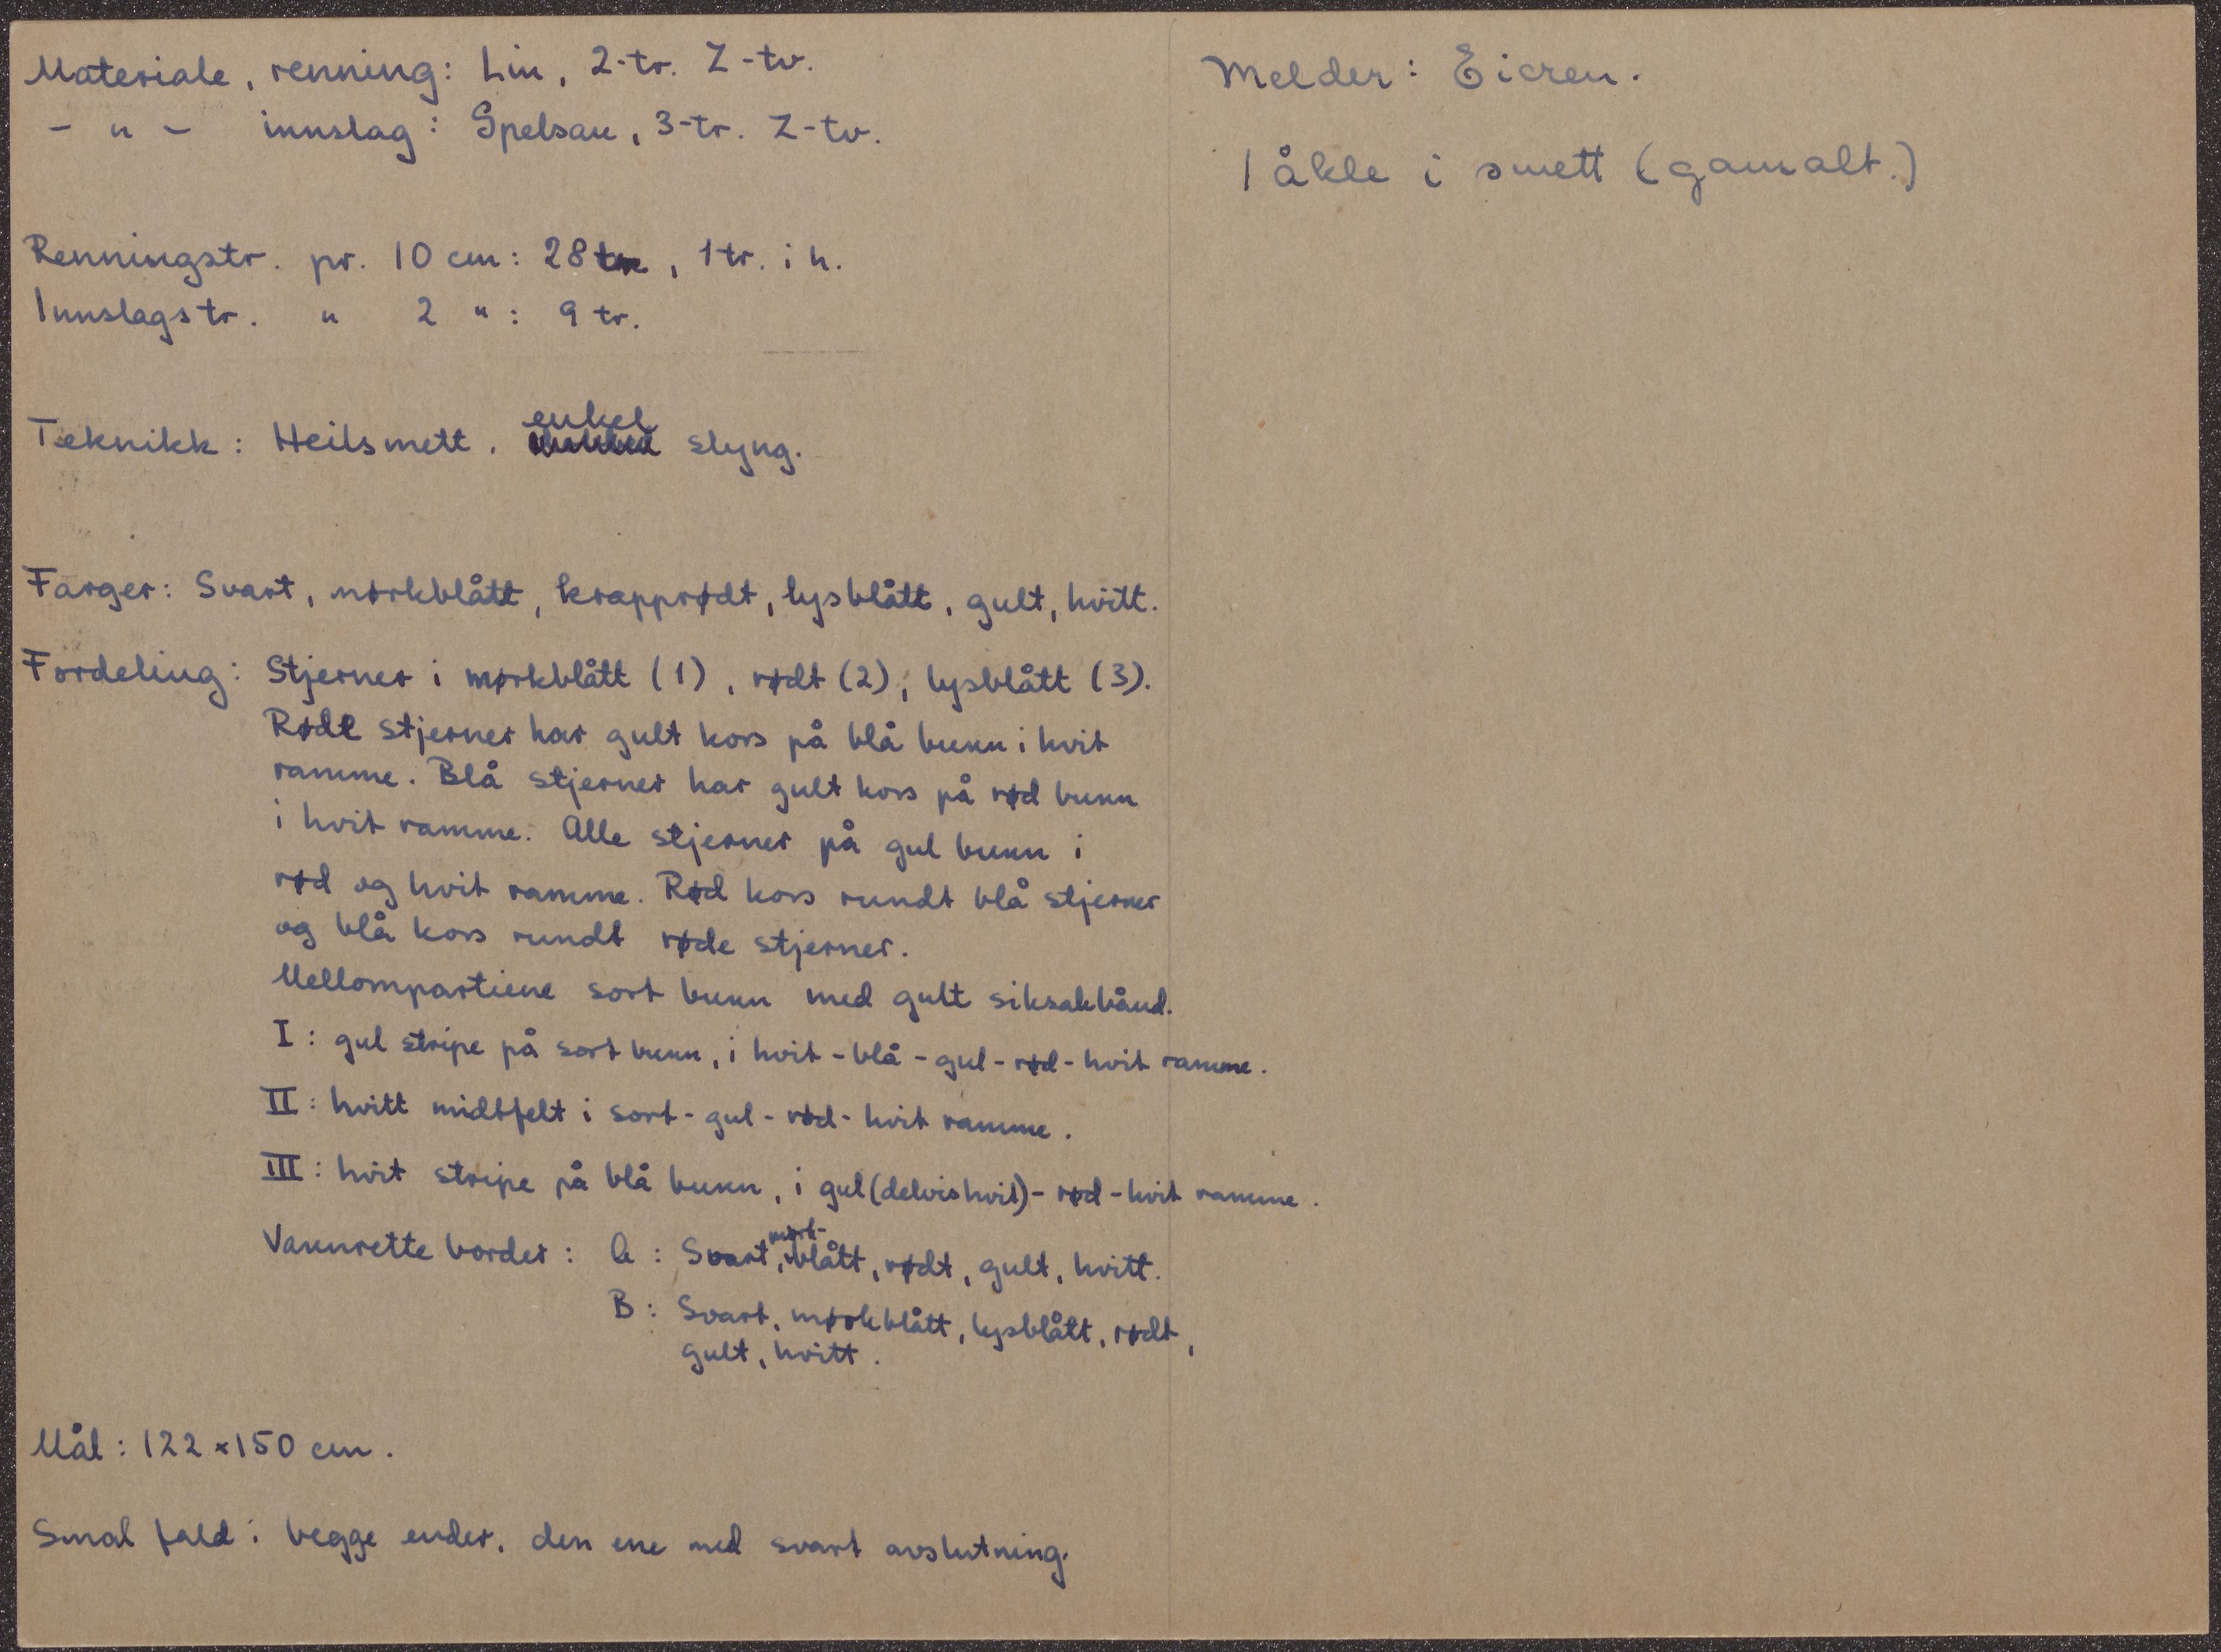 Materiale, renning: Lin, 2-tr. Z-tv.
- " - innslag: Spelsau, 3-tr. Z-tv.
Renningstr. pr. 10 cm: 28, 1 tr. i h.
Innslagstr. " 2 " : 9 tr.
Teknikk: Heilsmett. enkel slyng.
Farger: Svart, mørkblått, krapprødt, lysblått, gult, hvitt.
Fordeling: Stjerner i mørkblått (1), rødt (2), lysblått (3).
Røde stjerner har gult kors på blå bunn i hvit
ramme. Blå stjerner har gult kors på rød bunn
i hvit ramme. Alle stjerner på gul bunn i
rød og hvit ramme. Rød kors rundt blå stjerner
og blå kors rundt røde stjerner.
Mellompartiene sort bunn med gult siksakbånd.
I: gul stripe på sort bunn, i hvit-blå-gul-rød-hvit ramme.
II: hvitt midtfelt i sort-gul-rød-hvit ramme.
III: hvit stripe på blå bunn, i gul (delvis hvit)-rød-hvit ramme.
Vannrette border: A: Svart, mørk-blått, rødt, gult, hvitt.
B: Svart, mørkblått, lysblått, rødt,
gult, hvitt.
Mål: 122 x 150 cm.
Smal fald i begge ender, den ene med svart avslutning.
Melder: Eicren.
1 åkle i smett (gamalt.)